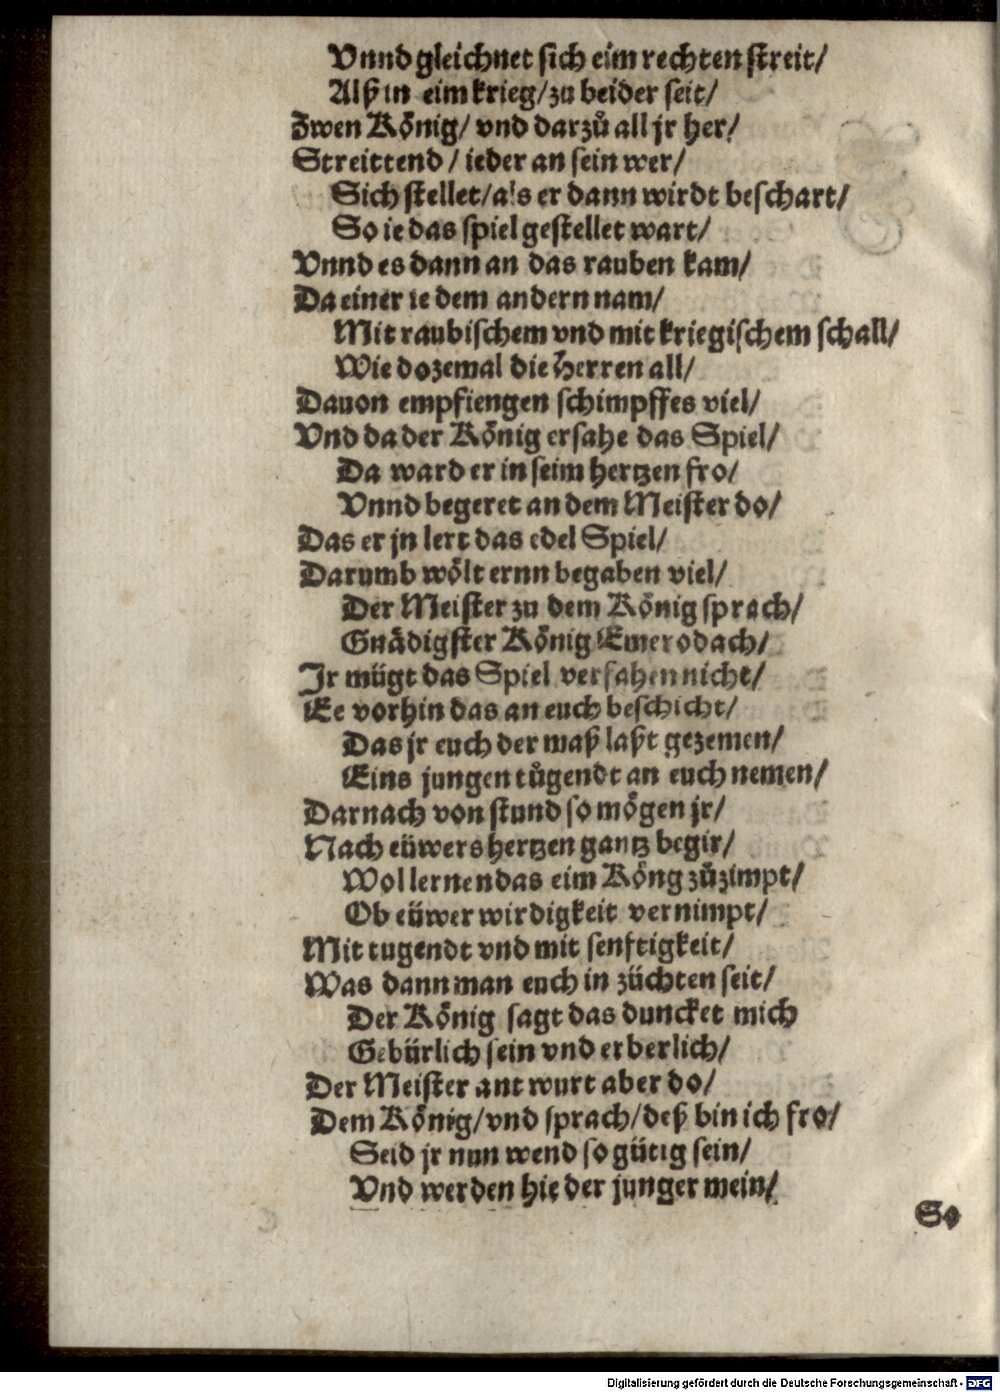 Vnnd gleichnet sich eim rechten streit/
Alß in eim krieg/zu beider seit/
Zwen König/ vnd darzů all jr her/
Streittend / ieder an sein wer/
Sich stellet/als er dann wirdt beschart/
So ie das spiel gestellet wart/
Vnnd es dann an das rauben kam/
Da einer ie dem andern nam/
Mit raubischem vnd mit kriegischem schall/
Wie dozemal die Herren all/
Dauon empfiengen schimpffes viel/
Vnd da der König ersahe das Spiel/
Da ward er in seim hertzen fro/
Vnnd begeret an dem Meister do/
Das er jn lert das edel Spiel/
Darumb wölt ernn begaben viel/
Der Meister zu dem König sprach/
Gnädigster König Emerodach/
Jr mügt das Spiel verfahen nicht/
Ee vorhin das an euch beschicht/
Das jr euch der maß laßt gezemen/
Eins jungen tůgendt an euch nemen/
Darnach von stund so mögen jr/
Nach eüwers hertzen gantz begir/
Wol lernen das eim Köng zůzimpt/
Ob eüwer wirdigkeit vernimpt/
Mit tugendt vnd mit senftigkeit/
Was dann man euch in züchten seit/
Der König sagt das duncket mich
Gebürlich sein vnd erberlich/
Der Meister ant wurt aber do/
Dem König/vnd sprach/deß bin ich fro/
Seid jr nun wend so gütig sein/
Vnd werden hie der junger mein/
So
Digitalisierung gefördert durch die Deutsche Forschungsgemeinschaft - DFG